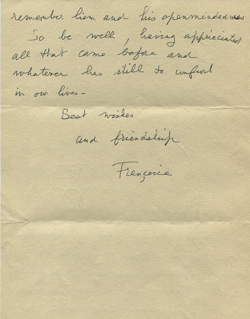 remember him and his openmindedness
So be well, having appreciated
all that came before and
whatever has still to unfurl
in our lives -
Best wishes
and friendship
Françoise